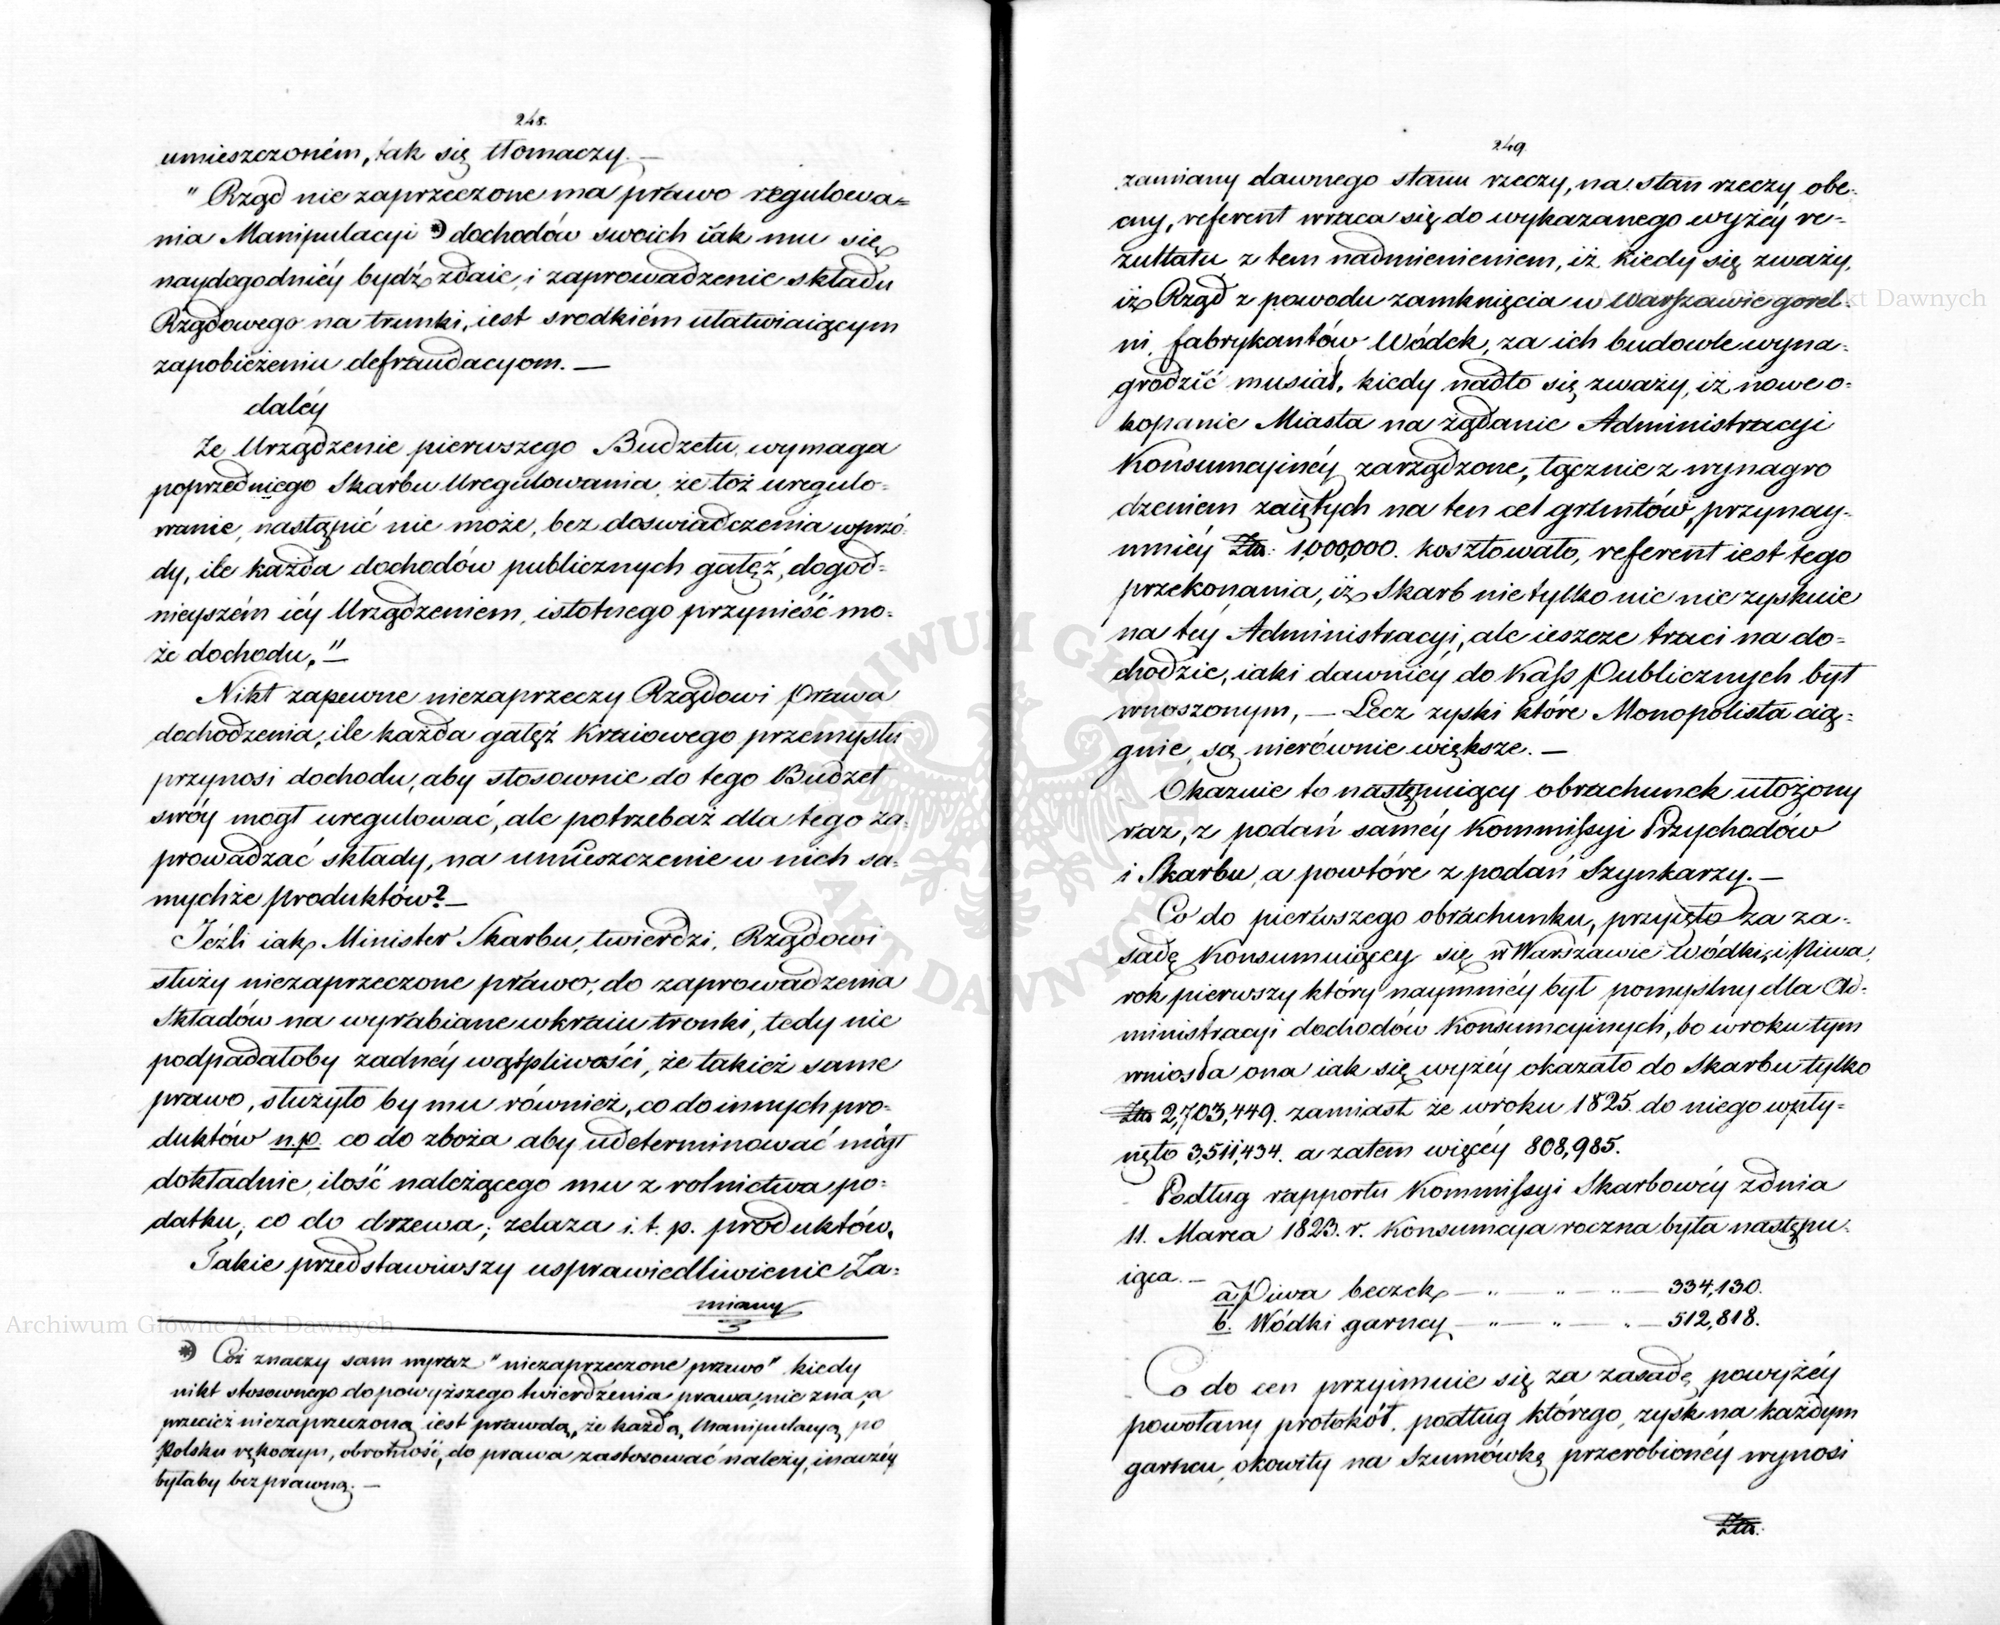 248.
umieszczoném, tak się tłomaczy. —
" Rząd nie zaprzeczone ma prawo regulowa=
nia Manipulacyi *) dochodów swoich iak mu się
naydogodniéy bydź zdaie, i zaprowadzenie składu
Rządowego na trunki, iest srodkiém ułatwiaiącym
zapobieżeniu defraudacyom. —
daléy
Że Urządzenie pierwszego Budżetu, wymaga
poprzedniego Skarbu Uregulowania, że toż uregulo=
wanie, nastąpić nie może, bez doswiadczenia wprzó=
dy, ile każda dochodów publicznych gałęź, dogod=
nieyszém iéy Urządzeniem, istotnego przynieść mo=
że dochodu." —
Nikt zapewne niezaprzeczy Rządowi prawa
dochodzenia, ile każda gałęź Kraiowego przemysłu
przynosi dochodu, aby stosownie do tego Budżet
swóy mógł uregulować, ale potrzebaż dla tego za=
prowadzać składy, na umieszczenie w nich sa=
mychże produktów? —
Jeźli iak, Minister Skarbu, twierdzi, Rządowi
służy niezaprzeczone prawo, do zaprowadzenia
Składów na wyrabiane w kraiu tronki, tedy nie
podpadałoby żadnéy wątpliwości, że takież same
prawo, służyło by mu również, co do innych pro=
duktów n.p. co do zboża aby udeterminować mógł
dokładnie, ilość należącego mu z rolnictwa po=
datku, co do drzewa; żelaza i. t. p. produktów.
Takie przedstawiwszy usprawiedliwienie Za=
miany
*) Coż znaczy sam wyraz "niezaprzeczone prawo" kiedy
nikt stosownego do powyższego twierdzenia prawa, nie zna, a
przecież niezaprzeczoną iest prawdą, że każdą Manipulacyą, po
Polsku rękoczyn, obrotność, do prawa zastosować należy, inaczéy
byłaby bezprawną. —
249
zamiany dawnego stanu rzeczy, na stan rzeczy obe=
cny, referent wraca się do wykazanego wyżéy re=
zultatu z tem nadmienieniem, iż kiedy się zważy,
iż Rząd z powodu zamknięcia w Warszawie gorel=
ni, fabrykantów Wódek, za ich budowle wyna=
grodzić musiał, kiedy nadto się zważy, iż nowe o=
kopanie Miasta na żądanie Administracyi
Konsumcyinéy zarządzone, łącznie z wynagro
dzeniem zaiętych na ten cel gruntów, przynay=
mniéy Złł: 1,000,000. kosztowało, referent iest tego
przekonania, iż Skarb nie tylko nic nie zyskuie
na tey Administracyi, ale ieszcze traci na do=
chodzie, iaki dawniéy do Kass Publicznych był
wnoszonym, — Lecz zyski które Monopolista cią=
gnie, są nierównie większe. —
Okazuie to następuiący obrachunek ułożony
raz, z podań saméy Kommissyi Przychodów
i Skarbu, a powtóre z podań Szynkarzy. —
Co do pierwszego obrachunku, przyięto za za=
sadę Konsumuiącey się w Warszawie Wódki, i Piwa,
rok pierwszy który naymniéy był pomyslny dla Ad=
ministracyi dochodów Konsumcyinych, bo w roku tym
wniosła ona iak się wyżéy okazało do Skarbu tylko
Złł 2,703,449. zamiast że w roku 1825. do niego wpły=
nęło 3,511,434. a zatem więcéy 808,985.
Podług rapportu Kommissyi Skarbowéy z dnia
11. Marca 1823. r. Konsumcya roczna była następu=
iąca. —
a. Piwa beczek — " — " — " — 334,130.
b. Wódki garncy — " — " — " — 512,818.
Co do cen przyimuie się za zasadę, powyżéy
powołany protokół, podług którego, zysk na każdym
garncu, okowity na Szumówkę przerobionéy wynosi
Złł.
Archiwum Główne Akt Dawnych